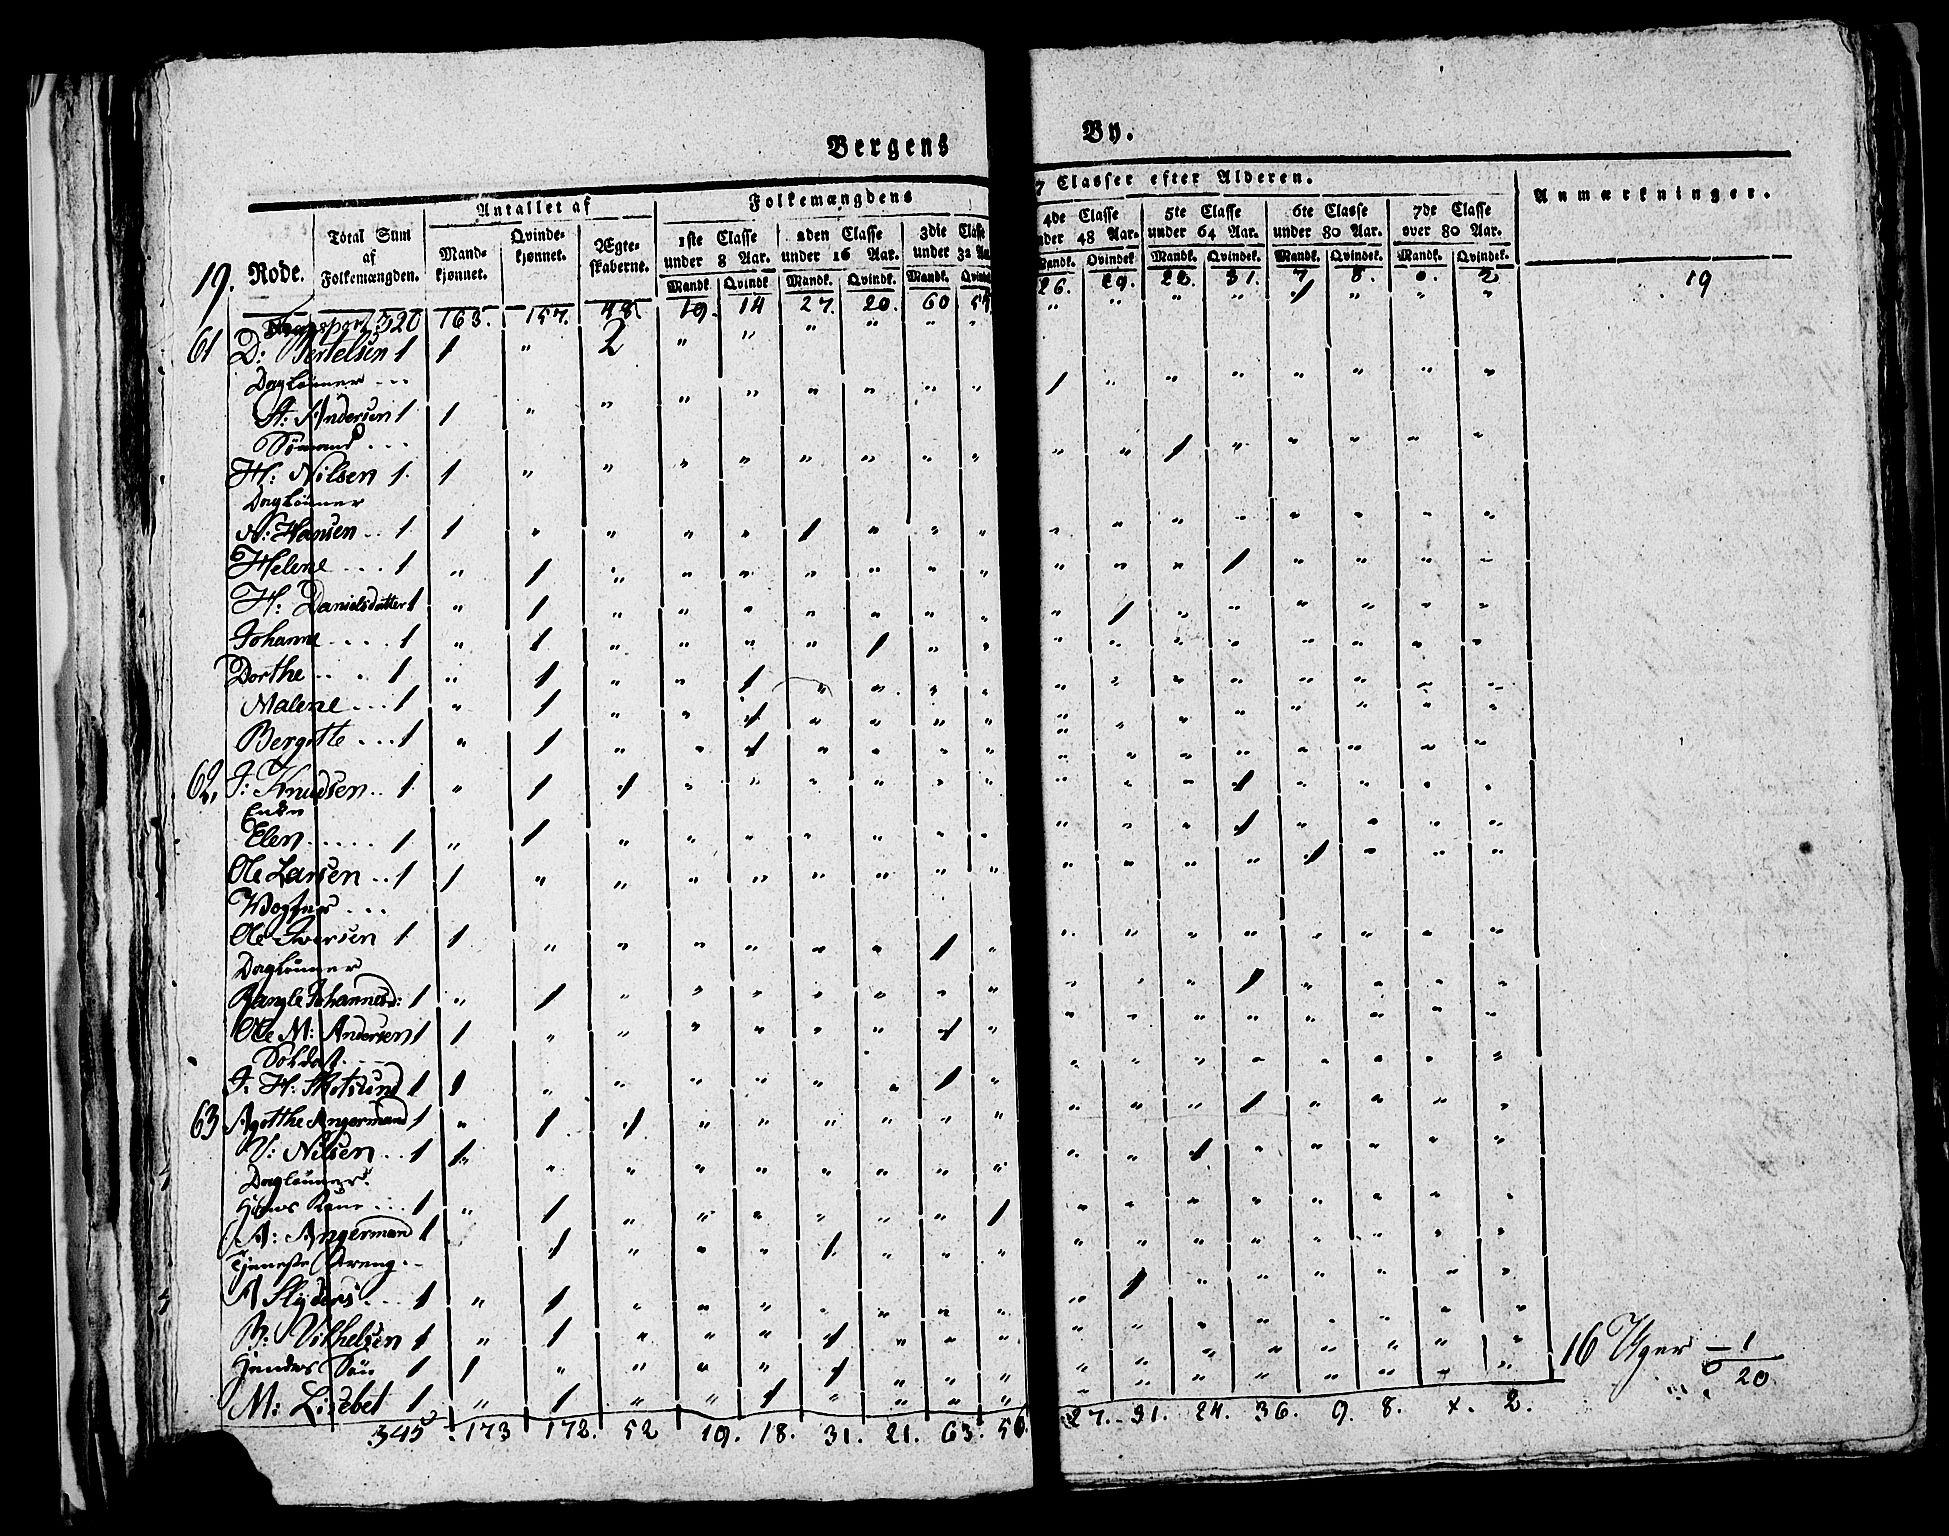 Bergens By.
19. Rode. Total Sum af Folkemængden. Antallet af Folkemængdens 7 Classer efter Alderen. Anmærkninger.
Mandkjønnet. Qvindekjønnet. Ægteskaberne. 1ste Classe under 8 Aar. 2den Classe under 16 Aar. 3die Classe under 32 Aar 4de Classe under 48 Aar. 5te Classe under 64 Aar. 6te Classe under 80 Aar. 7de Classe over 80 Aar.
Mandk. Qvindk. Mandk. Qvindk. Mandk. Qvindk. Mandk. Qvindek. Mandk. Qvindek. Mandk. Qvindek. Mandk. Qvindek.
Transport 320 163. 157. 48. 19. 14 27. 20. 60 26. 29. 31. 7 8. 2 19
61 D: Bertelsen 1 1 " 2 " "
Daglønner ...
A: Andersen 1 1 " " " " " " "
Sømand ...
H: Nilsen 1. 1 " " " " " " "
Daglønner
N: Hansen .. 1 1 " " " " 1 " " "
Helene .... 1 " 1 " " " " " " "
H: Danielsdatter 1 " 1 " " " " " " "
Johanne .... 1 " 1 " " " " 1 " "
Dorthe .. . 1 " 1 " " 1 " " " "
Malene ... 1 " 1 " " 1 " " " "
Bergitte ... 1 " 1 " " 1 " " " "
62, J: Knudsen .. 1 " 1 1 " " " " " "
Enke
Elen ..... 1 " 1 " " " " " " "
Ole Larsen .. 1 1 " " " " " " " "
Ole Iversen 1 1 " " " " " " 1 "
Daglønner
Rangle Johannesd: 1 " 1 " " " " " " "
Ole M: Andersen 1 1 " " " " " " 1 "
Soldat ...
J. H: Skotsund 1 1 " " " " " " 1 "
63 Agotthe Angermand 1 " 1 1 " " " " " "
J: Nilsen .. 1 1 " " " " " " "
Daglønner.
Hans Kone ... 1 " 1 " " " " " " 1
A: Angermand 1 1 " " " 1 " " "
Tjeneste Dreng ..
... 1 " 1 " " " " " " "
B: Vilhelsen 1 " 1 " " " 1 " " " 16 Uger – 1
Hendes Søn 1 1 " " " " 1 " " " 20
M: Lisebet 1 " 1 " " 1 " " " "
345 173 172. 52 19. 18. 31. 21. 63. 56. 27. 31. 24. 36. 9. 8. 2.